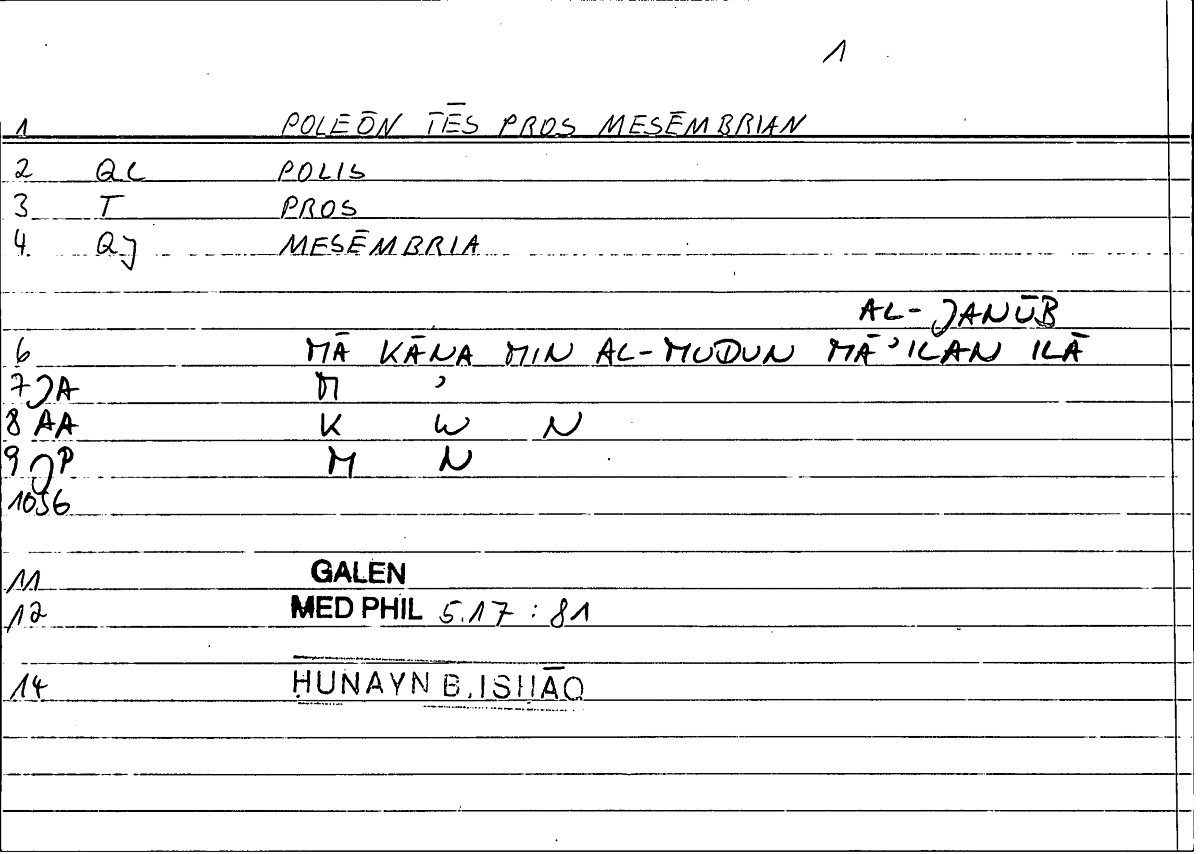 1
1 POLEŌN TĒS PROS MESĒMBRIAN
2 QL POLIS
3 T PROS
4. QJ MESĒMBRIA
AL-JANŪB
6 MĀ KĀNA MIN AL-MUDUN MĀʾILAN ILĀ
7 JA M ʾ
8 AA K W N
9 JP M N
10 56
11 GALEN
12 MED PHIL 5.17 : 81
14 ḤUNAYN B. ISḤĀQ